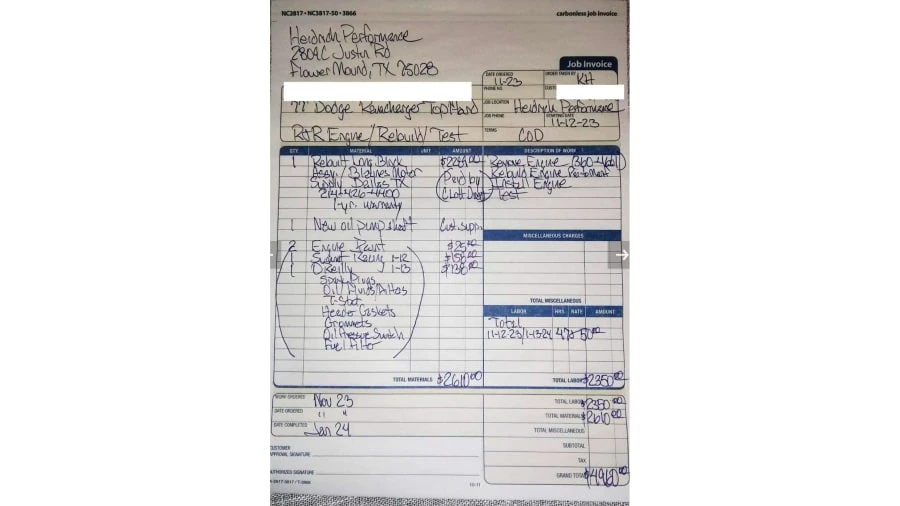 NC2817 • NC3817-50 • 3866
carbonless job invoice
Heidrich Performance
2804C Justin Rd
Flower Mound, TX 75028
Job Invoice
DATE ORDERED
11-23
ORDER TAKEN BY
KH
PHONE NO.
77 Dodge Ramcharger Top Hand
JOB LOCATION
Heidrich Performance
JOB PHONE
STARTING DATE
11-12-23
R&R Engine/Rebuild/Test
TERMS
COD
QTY. MATERIAL UNIT AMOUNT
DESCRIPTION OF WORK
1 Rebuilt Long Block $2249.00
Assy./Blaynes Motor
Supply Dallas TX
214-426-4400
1-yr. warranty
Paid by
Remove Engine
Rebuild Engine
Install Engine
Test
1 New oil pump shaft Cust. supp.
2 Engine Paint $25.00
1 Summit Racing 1-12
1 O'Reilly 1-13
Spark Plugs
Oil/Fluids/Filters
T-Stat
Header Gaskets
Grommets
Oil Pressure Switch
Fuel Filter
MISCELLANEOUS CHARGES
TOTAL MISCELLANEOUS
LABOR HRS RATE AMOUNT
Total
11-12-23/1-13-24 47 50.00
TOTAL MATERIALS $2610.00
TOTAL LABOR $2350.00
WORK ORDERED
Nov 23
DATE ORDERED
" "
DATE COMPLETED
Jan 24
TOTAL LABOR $2350.00
TOTAL MATERIALS $2610.00
TOTAL MISCELLANEOUS
SUBTOTAL
TAX
GRAND TOTAL $4960.00
CUSTOMER
APPROVAL SIGNATURE
AUTHORIZED SIGNATURE
10-11